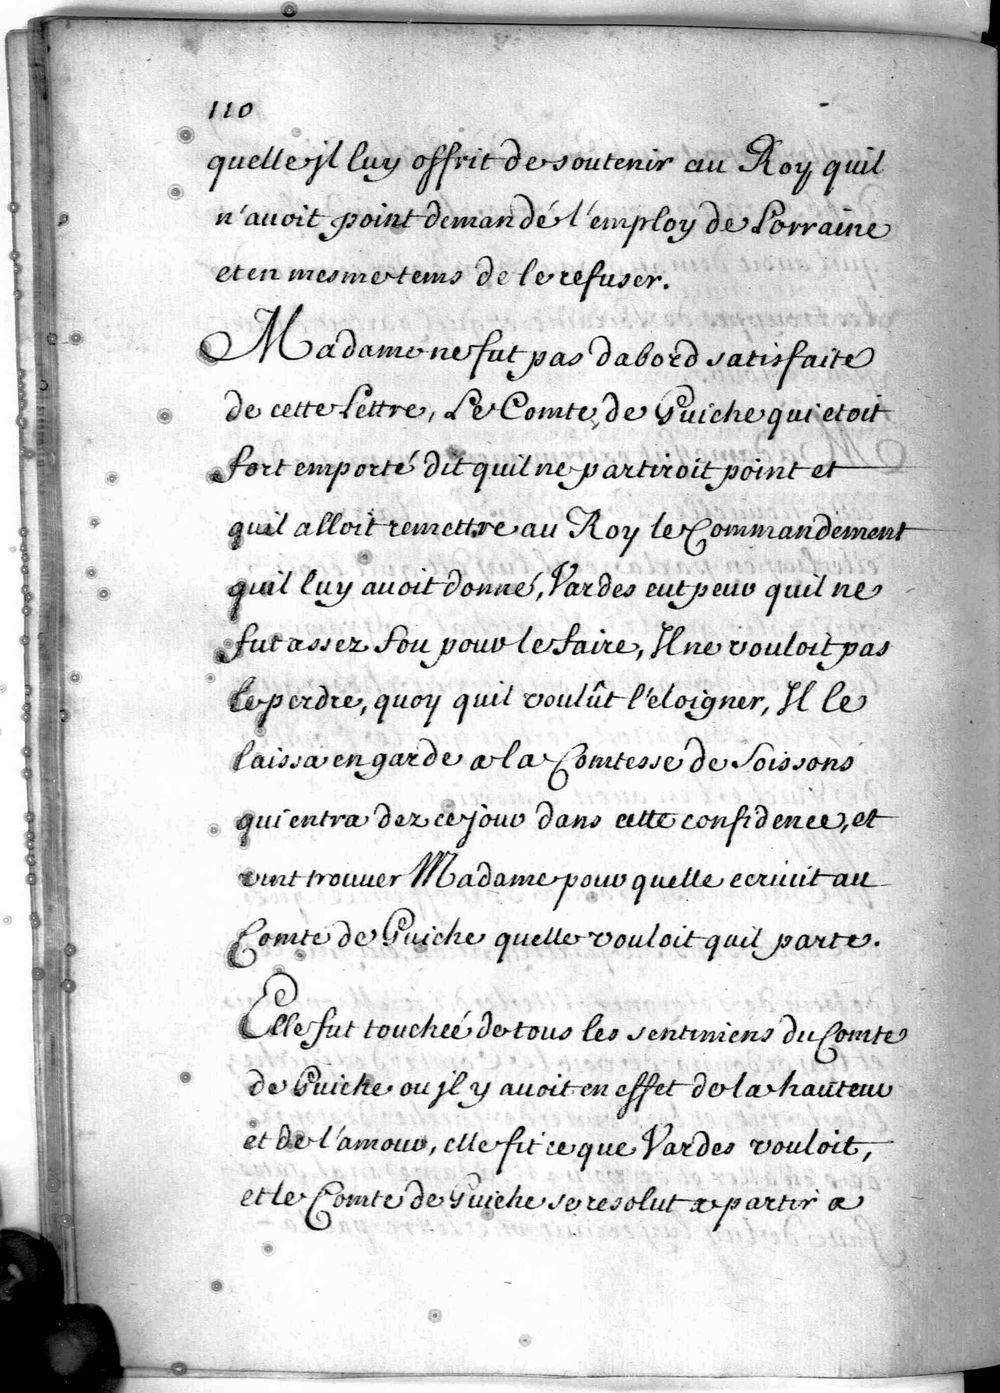 110
quelle jl luy offrit de soutenir au Roy quil
n'avoit point demandé l'employ de Lorraine
et en mesme tems de le refuser.
Madame ne fut pas dabord satisfaite
de cette Lettre, Le Comte de Guiche qui etoit
fort emporté dit quil ne partiroit point et
quil alloit remettre au Roy le Commandement
quil luy avoit donné, Vardes eut peur quil ne
fut assez fou pour le faire, Il ne vouloit pas
le perdre, quoy quil voulût l'éloigner, Il le
laissa en garde a la Comtesse de Soissons
qui entra dez ce jour dans cette confidence, et
vint trouver Madame pour quelle ecrivit au
Comte de Guiche quelle vouloit quil parte.
Elle fut touchée de tous les sentimens du Comte
de Guiche ou jl y avoit en effet de la hauteur
et de l'amour, elle fit ce que Vardes vouloit,
et le Comte de Guiche se resolut a partir a